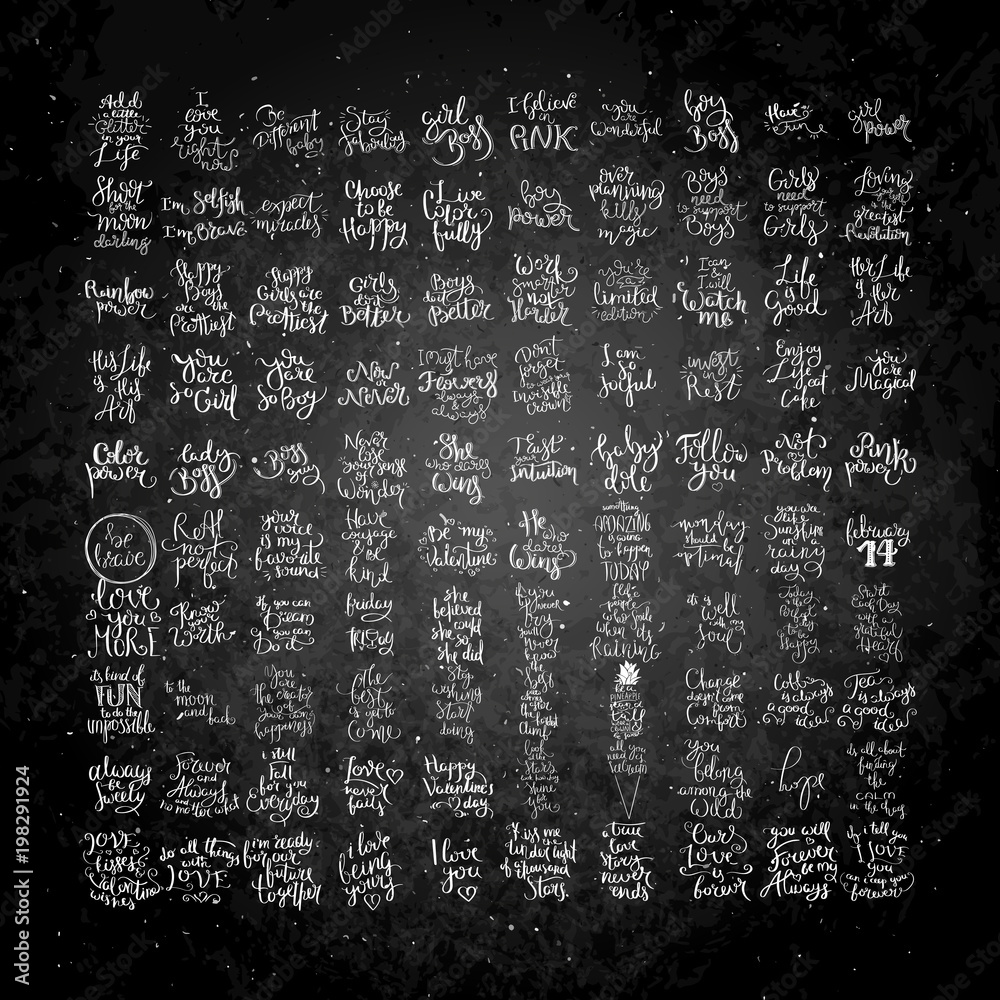 Add
a little
Glitter
in your
Life
I
love
you
right
now
Be
Different
baby
Stay
girl
Boss
I believe
in
PiNK
you
are
wonderful
boy
Boss
Have
fun
girl
power
Shoot
for the
moon
darling
I'm Selfish
I'm Brave
expect
miracles
Choose
to be
Happy
Live
Color
fully
boy
power
over
planning
kills
magic
Boys
need
to support
Boys
Girls
need
to support
Girls
Loving
greatest
Revolution
Rainbow
power
Happy
Boys
are the
Prettiest
Happy
Girls are
the
Prettiest
Girls
do it
Better
Boys
do it
Better
Work
Smarter
not
Harder
you're
a
limited
edition
I can
& I will
Watch
me
Life
is
Good
Her Life
is Her
Art
His Life
is His
Art
you
are
so Girl
you
are
so Boy
Now
or
Never
I Must have
Flowers
always
&
always
Don't
forget
to wear
your
Invisible
Crown
I am
so
Joyful
invest
in
Rest
Enjoy
Life
eat
Cake
you
are
Magical
Color
power
Lady
Boss
Boss
guy
Never
lose
your sense
of
Wonder
She
who dares
Wins
Trust
your
Intuition
baby
dole
Follow
you
Not
my
Problem
Pink
power
be
brave
ReAl
not
perfect
your
voice
is my
favorite
sound
Have
courage
& be
kind
Be my
Valentine
He
who dares
Wins
something
AMAZING
is
going
to happen
TODAY
monday
should be
optional
you are
like
Sunshine
on a
rainy
day
february
14
love
you
MORE
Know
your
Worth
If you can
Dream
it you can
Do it
friday
my
she
believed
she could
so
she did
if you
never
try
you'll
never
know
people
who smile
when it's
Raining
it's is well
with my
Soul
Today
is the
Perfect
day
to be
Happy
Start
Each Day
with a
grateful
Heart
its kind of
FUN
to do the
impossible
to the
moon
and
back
You
are
the creator
of
your own
happiness
the
best
is yet to
come
Stop
wishing
Start
doing
the best
view
comes
after
the hardest
climb
be a
PINEAPPLE
stand
tall
wear a
crown
& be
sweet
Change
doesn't come
from
Comfort
Coffee
is always
a good
idea
Tea
is always
a good
idea
always
be
Sweety
Forever
and
Always
and no matter what
I still
Fall
for you
Everyday
Love
never
fails
Happy
Valentine's
day
look
at the
Stars
look how they
shine
for
you
all you
need is
icecream
You
belong
among the
Wild
hope
its all about
finding
the
CALM
in the chaos
LOVE
kisses
&
Valentine
wishes
do all things
with
LOVE
i'm ready
for our
future
together
i love
being
yours
I love
you
Kiss me
under
the light
of a thousand
Stars.
a true
love
story
never
ends
Ours
Love
is
forever
you will
Forever
be my
Always
if i tell you
I LOVE
you
can i keep you
forever
Adobe Stock | #198291924